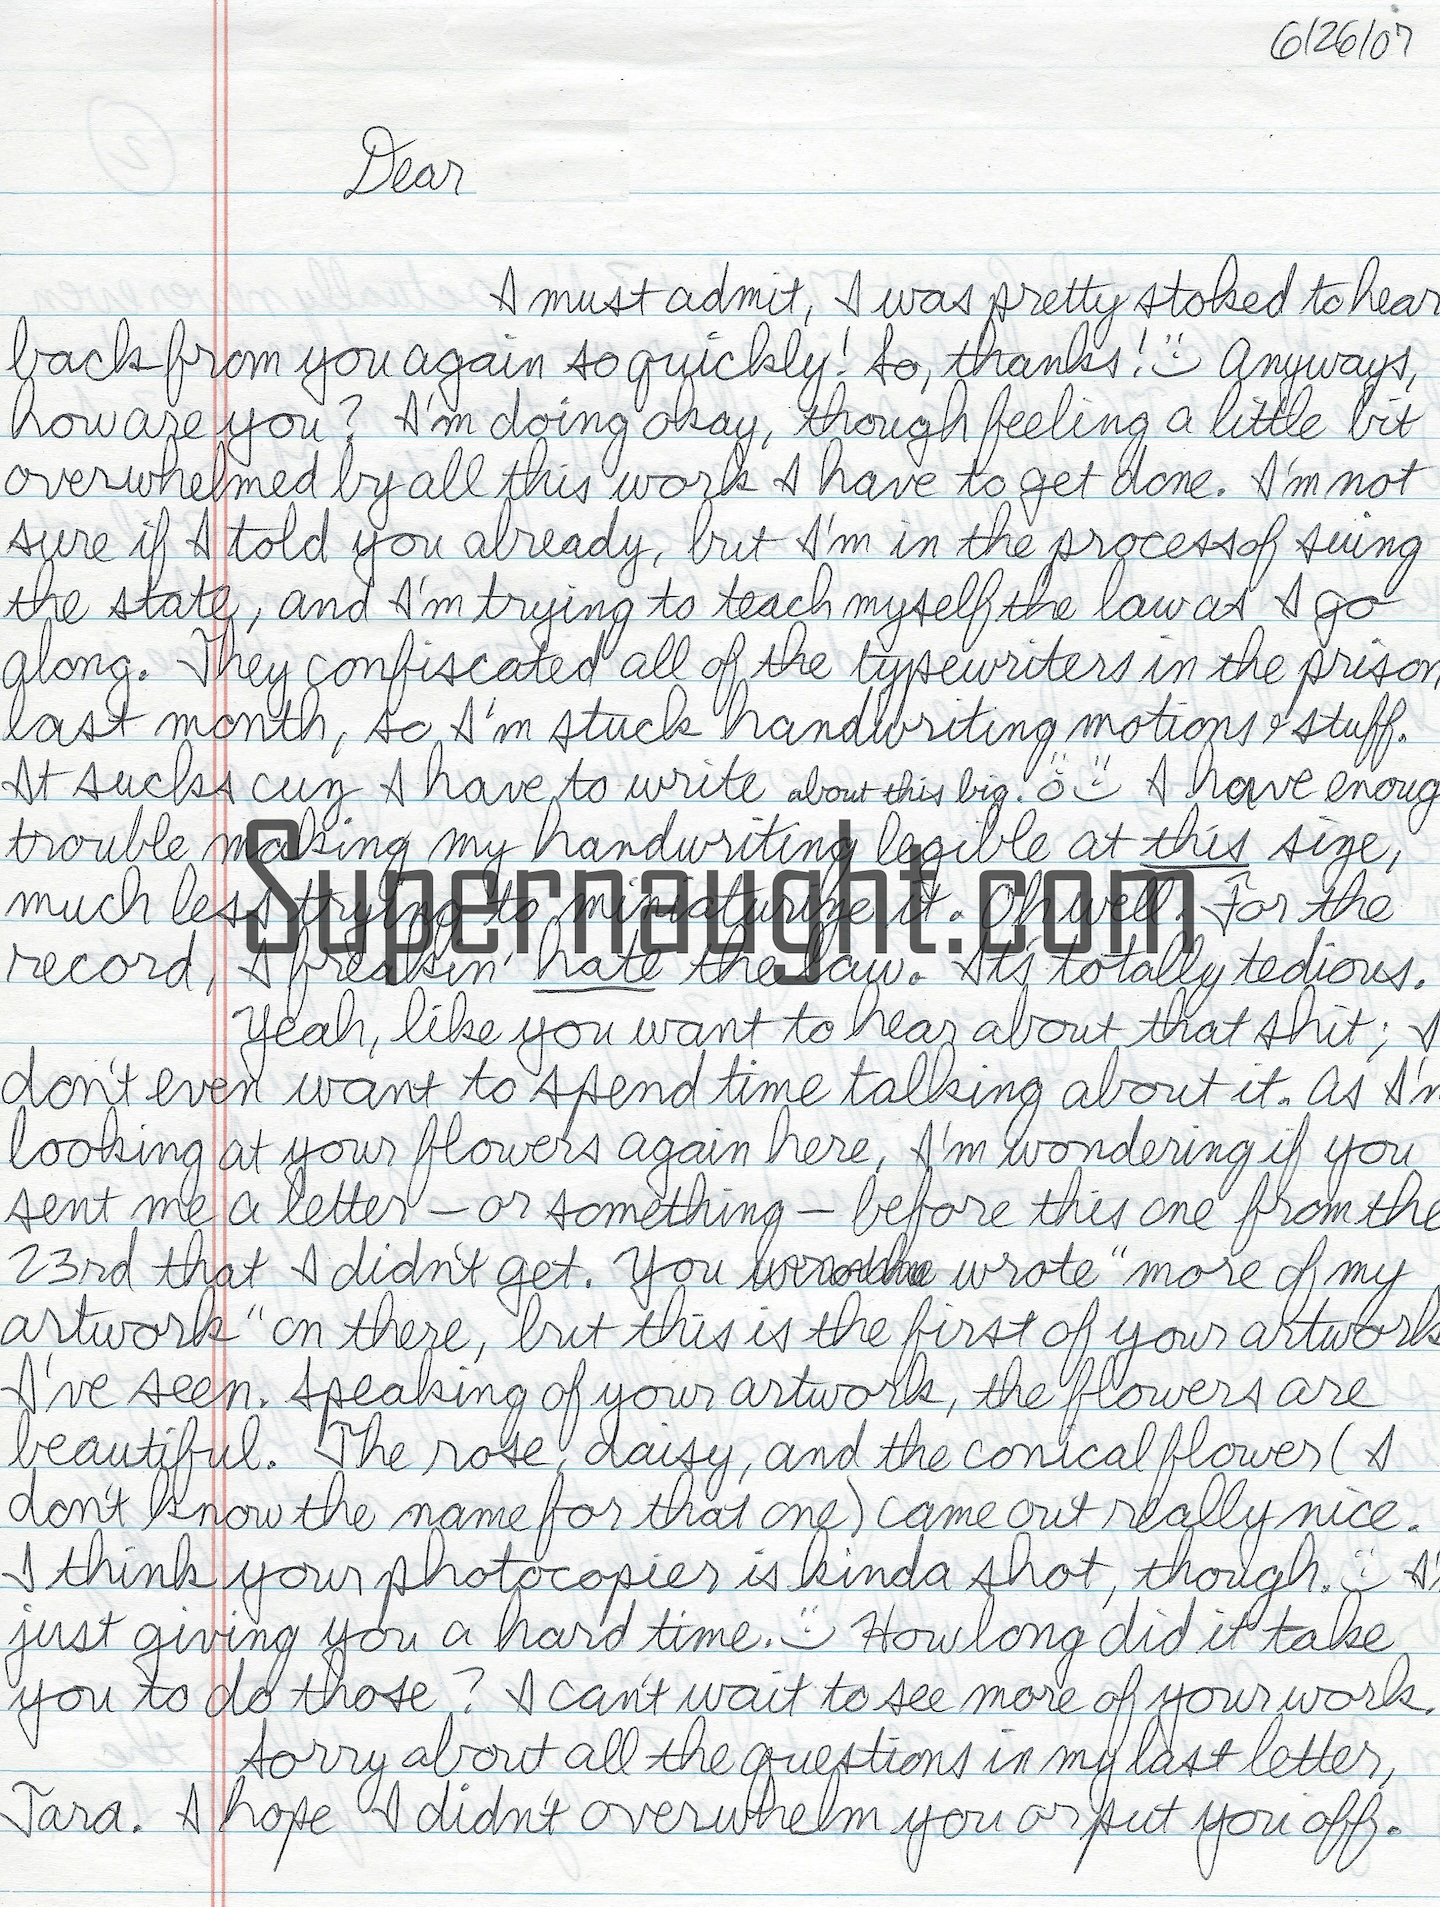 6/26/07
Dear
I must admit, I was pretty stoked to hear
back from you again so quickly! So, thanks! Anyways,
how are you? I'm doing okay, though feeling a little bit
overwhelmed by all this work I have to get done. I'm not
sure if I told you already, but I'm in the process of suing
the state, and I'm trying to teach myself the law as I go
along. They confiscated all of the typewriters in the prison
last month, so I'm stuck handwriting motions & stuff.
It sucks cuz I have to write about this big. I have enoug
trouble making my handwriting legible at this size,
much less trying to miniaturize it. Oh well. For the
Supernaught.com
record, I freakin' hate the law. It's totally tedious.
Yeah, like you want to hear about that shit; I
don't even want to spend time talking about it. As I'm
looking at your flowers again here, I'm wondering if you
sent me a letter – or something – before this one from the
23rd that I didn't get. You wrote "more of my
artwork" on there, but this is the first of your artwork
I've seen. Speaking of your artwork, the flowers are
beautiful. The rose, daisy, and the conical flower (I
don't know the name for that one) came out really nice.
I think your photocopier is kinda shot, though. I'
just giving you a hard time. How long did it take
you to do those? I can't wait to see more of your work.
Sorry about all the questions in my last letter,
Tara. I hope I didn't overwhelm you or put you off.